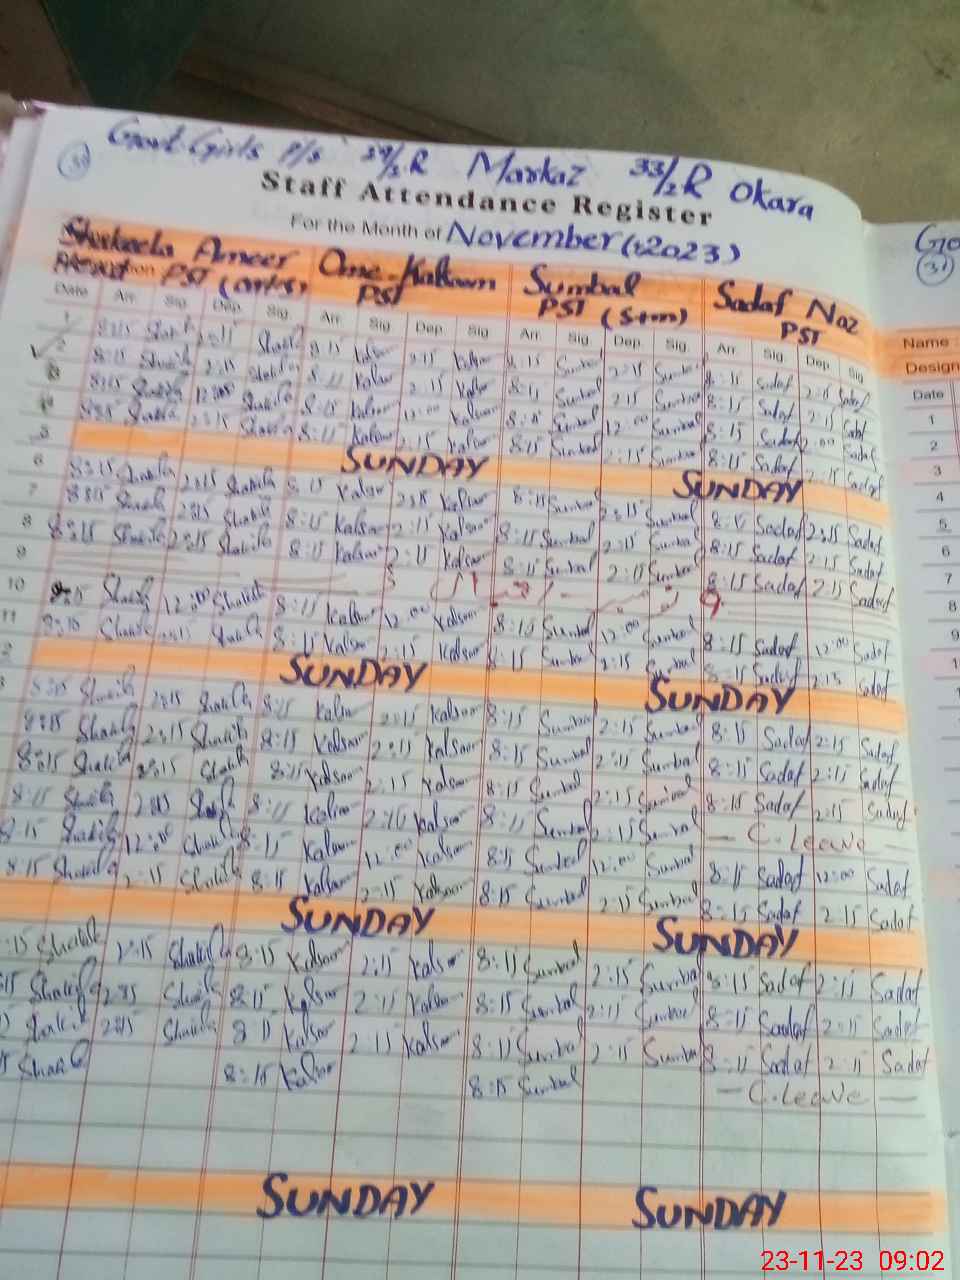 Govt. Girls P/S 39/2.R Markaz 33/2R Okara
31
Staff Attendance Register
For the Month of November (2023)
Shakeela Ameer Ome-Kalsoom Sumbal Sadaf Naz
PST (Arts) PST PST (S+m) PST
Date Arr. Sig. Dep. Sig. Arr. Sig. Dep. Sig. Arr. Sig. Dep. Sig. Arr. Sig. Dep. Sig.
1 8:15 2:15 8:15 Kalsoom 2:15 Kalsoom 8:15 Sumbal 2:15 Sumbal 8:15 Sadaf 2:15 Sadaf
2 8:15 2:15 8:15 Kalsoom 2:15 Kalsoom 8:15 Sumbal 2:15 Sumbal 8:15 Sadaf 2:15 Sadaf
3 8:15 12:00 8:15 Kalsoom 12:00 Kalsoom 8:15 Sumbal 12:00 Sumbal 8:15 Sadaf 12:00 Sadaf
4 8:15 2:15 8:15 Kalsoom 2:15 Kalsoom 8:15 Sumbal 2:15 Sumbal 8:15 Sadaf 2:15 Sadaf
5 SUNDAY SUNDAY
6 8:15 2:15 8:15 Kalsoom 2:15 Kalsoom 8:15 Sumbal 2:15 Sumbal 8:15 Sadaf 2:15 Sadaf
7 8:15 2:15 8:15 Kalsoom 2:15 Kalsoom 8:15 Sumbal 2:15 Sumbal 8:15 Sadaf 2:15 Sadaf
8 8:15 2:15 8:15 Kalsoom 2:15 Kalsoom 8:15 Sumbal 2:15 Sumbal 8:15 Sadaf 2:15 Sadaf
9
10 8:15 12:00 8:15 Kalsoom 12:00 Kalsoom 8:15 Sumbal 12:00 Sumbal 8:15 Sadaf 12:00 Sadaf
11 8:15 2:15 8:15 Kalsoom 2:15 Kalsoom 8:15 Sumbal 2:15 Sumbal 8:15 Sadaf 2:15 Sadaf
2 SUNDAY SUNDAY
8:15 2:15 8:15 Kalsoom 2:15 Kalsoom 8:15 Sumbal 2:15 Sumbal 8:15 Sadaf 2:15 Sadaf
8:15 2:15 8:15 Kalsoom 2:15 Kalsoom 8:15 Sumbal 2:15 Sumbal 8:15 Sadaf 2:15 Sadaf
8:15 2:15 8:15 Kalsoom 2:15 Kalsoom 8:15 Sumbal 2:15 Sumbal 8:15 Sadaf 2:15 Sadaf
8:15 2:15 8:15 Kalsoom 2:15 Kalsoom 8:15 Sumbal 2:15 Sumbal — C. Leave —
8:15 12:00 8:15 Kalsoom 12:00 Kalsoom 8:15 Sumbal 12:00 Sumbal 8:15 Sadaf 12:00 Sadaf
8:15 2:15 8:15 Kalsoom 2:15 Kalsoom 8:15 Sumbal 2:15 Sumbal 8:15 Sadaf 2:15 Sadaf
SUNDAY SUNDAY
:15 2:15 8:15 Kalsoom 2:15 Kalsoom 8:15 Sumbal 2:15 Sumbal 8:15 Sadaf 2:15 Sadaf
:15 2:15 8:15 Kalsoom 2:15 Kalsoom 8:15 Sumbal 2:15 Sumbal 8:15 Sadaf 2:15 Sadaf
2:15 8:15 Kalsoom 2:15 Kalsoom 8:15 Sumbal 2:15 Sumbal 8:15 Sadaf 2:15 Sadaf
8:15 Kalsoom 8:15 Sumbal — C. Leave —
SUNDAY SUNDAY
Go
31
Name :
Design
Date
1
2
3
4
5
6
7
8
9
1
23-11-23 09:02